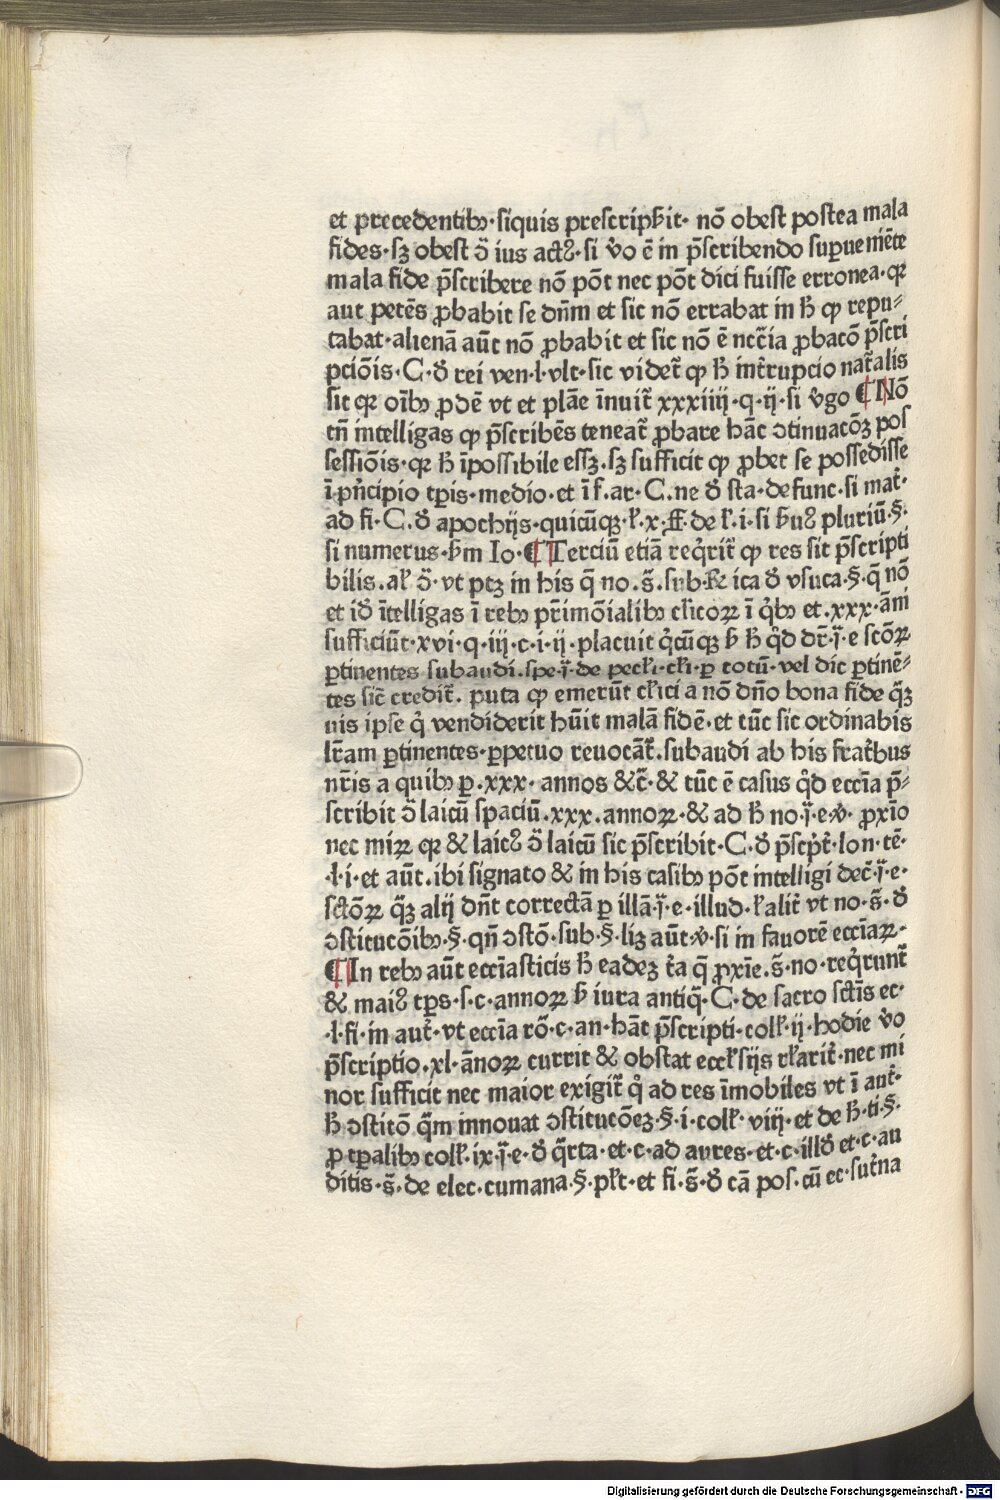 et precedentibꝫ·siquis prescripẜit· nō obest postea mala
fides·sꝫ obest ↄ̄ ius actꝰ·si v̊o ē in p̄scribendo superueniēte
mala fide p̄scribere nō pōt nec pōt dici fuisse erronea·qꝛ
aut petēs ꝓbabit se dn̄m et sic nō errabat in ħ ꝙ repu⸗
tabat·alienā aūt nō ꝓbabit et sic nō ē ncc̄ia ꝓbacō p̄scri
pciōis·C·ð rei ven·l·vlt·sic videt̄ ꝙ ħ int̄rupcio nat̄alis
sit qꝛ oībꝫ ꝓdē vt et plāe īnuit̄ xxxiiij·q·ij·si v̊go ¶ Nō
tn̄ intelligas ꝙ p̄scribēs teneat̄ ꝓbare hāc ↄtinuacōꝫ pos
sessiōis·qꝛ ħ īpossibile essꝫ·sꝫ sufficit ꝙ ꝓbet se possedisse
ī pn̄cipio tꝑis·medio·et ī f·ar·C·ne ð sta·defunc·si mat̄·
ad fi·C·ð apochijs·quicūqꝫ·ł·x·ff·de ł·i·si ẜuꝰ pluriū·§·
si numerus·ẜm Io·¶ Terciū etiā reqͥrit̄ ꝙ res sit p̄scripti
bilis·al̄ ↄ̄·vt ptꝫ in his q̄ no·s̄·sub·ica ð vsuca·§·q̄ nō
et ið ītelligas ī rebꝫ pr̄imōialibꝫ cl̄icoꝝ ī qͥbꝫ et·xxx·āni
sufficiūt·xvi·q·iij·c·i·ij·placuit qͥcūqꝫ ẜ ħ qͥd dr̄·j̄·e scōꝝ
ꝑtinentes subaudi·spe·j̄·de pecł·cłi·ꝑ totū·vel dic ꝑtinē⸗
tes sic̄ credit̄· puta ꝙ emerūt cłici a nō dn̄o bona fide qͣꝫ
uis ipse qͥ vendiderit hūit malā fidē·et tūc sic ordinabis
lr̄am ꝑtinentes·ꝑpetuo reuocāt̄·subaudi ab his frat̄bus
nr̄is a quibꝫ ꝑ·xxx· annos &c̄·& tūc ē casus qͥd eccīa p̄⸗
scribit ↄ̄ laicū spaciū·xxx·annoꝝ·& ad ħ no·j̄·e·v̊· ꝓxīo
nec miꝝ qꝛ & laicꝰ ↄ̄ laicū sic p̄scribit·C·ð p̄scp̄t̄·lon·tē·
·l·i·et aūt·ibi signato & in his casibꝫ pōt intelligi dec̄·j̄·e·
sctōꝝ qͣꝫ alij dn̄t correctā ꝑ illā·j̄·e·illud·łalit̄ vt no·s̄·ð
ↄstitucōibꝫ·§·qn̄ ↄstō·sub·§·lꝫ aūt·v̊·si in fauorē eccīaꝝ·
¶ In rebꝫ aūt eccīasticis ħ eadeꝫ t̄a q̄ ꝓxīe·s̄·no·reqͥrunt̄
& maiꝰ tꝑs·s·c·annoꝝ ẜ iura antiq̄·C·de sacro sctīs ec·
·l·fi·in aut̄·vt eccīa rō·c·an·hāc p̄scripti·coll̄·ij·hodie v̊o
p̄scriptio·xl·ānoꝝ currit & obstat eccłsijs rłarit̄·nec mi
nor sufficit nec maior exigit̄ qͥ ad res īmobiles vt ī aut̄·
ħ ↄstitō qͣm innouat ↄstitucōeꝫ·§·i·coll̄·viij·et de ħ·ti·§·
ꝓ tꝑalibꝫ coll̄·ix·j̄·e·ð q̄rta·et·c·ad aures·et·c·illð et·c·au
ditis·s̄·de elec·cumana·§·płt·et fi·s̄·ð cā pos·cū ec·sut̄na
Digitalisierung gefördert durch die Deutsche Forschungsgemeinschaft - DFG